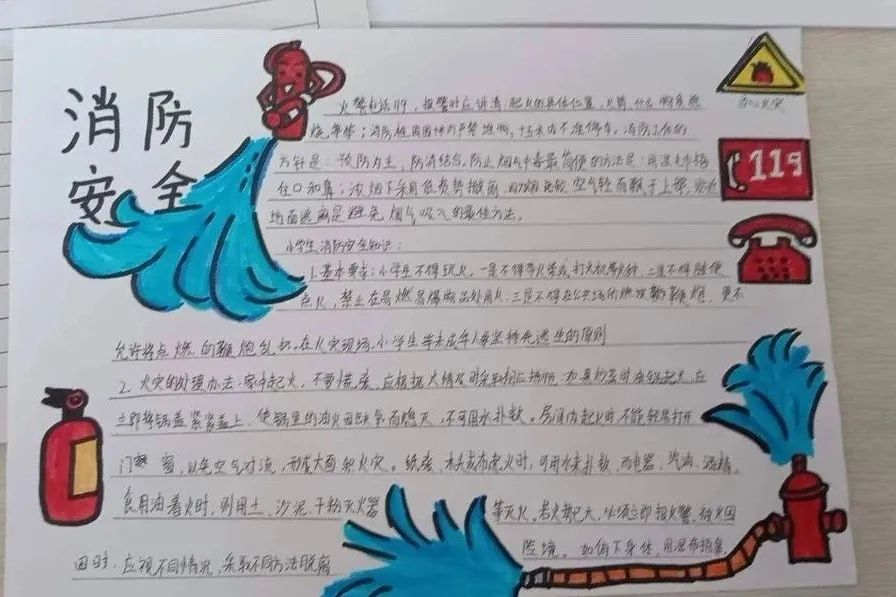 消防
安全
火警电话119，报警时应讲清：起火的具体位置，火势，什么物质燃
烧，等等；消防栓周围禁严禁堆物，十五米内不准停车。消防工作的
方针是：预防为主，防消结合，防止烟气中毒最简便的方法是：用湿毛巾捂
住口和鼻；浓烟下采用低姿势撤离，因为烟比较空气轻而飘于上部，
地面逃离是避免烟气吸入的最佳方法。
小学生消防安全知识：
1.基本要求：小学生不得玩火，一是不得带火柴或打火机等火种，二是不得随便
点火，禁止在易燃易爆物品处用火，三是不得在公共场所燃放鞭炮，更不
允许将点燃的鞭炮乱扔。在火灾现场，小学生等未成年人要坚持先逃生的原则
2、火灾的处理办法：家中起火，不要慌张，应根据火情及时采取相应措施：如炒菜时油锅起火，应
立即将锅盖紧紧盖上，使锅里的油火因缺氧而熄灭，不可用水扑救。房间内起火时，不能轻易打开
门窗，以免空气对流，形成大面积火灾。纸张、木头或布起火时，可用水来扑救，而电器、汽油、酒精、
食用油着火时，则用土、沙泥、干粉灭火器
等灭火，若火势已大，必须立即报火警，被火围
困时，应视不同情况，采取不同方法脱离
险境。如俯下身体，用湿布捂鼻，
119